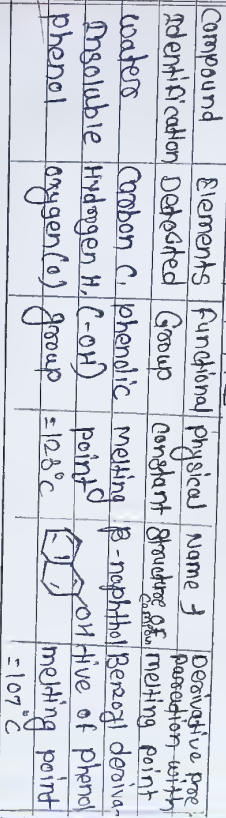 Compound Identification | Elements Detected | Functional Group | Physical Constant | Name & Structure of Compou | Derivative pre paraction with melting point
Waters Insoluble phenol | Carbon C, Hydrogen H, oxygen (O) | phenolic (-OH) group | Melting point = 128°C | β-naphthol OH | Benzoyl deriva- tive of phenol melting point = 107°C